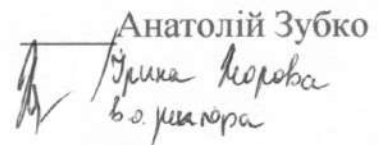 Анатолій Зубко
Ірина Корова
в.о. ректора